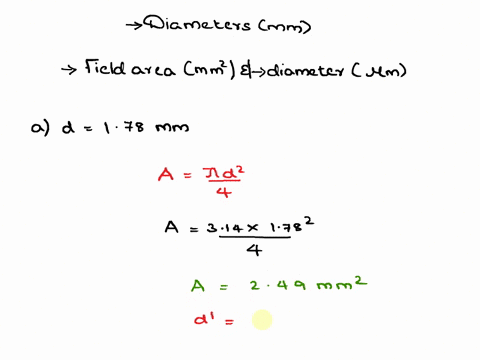 →Diameters (mm)
→ Field area (mm²) &→diameter (μm)
a) d = 1.78 mm
A = πd²/4
A = 3.14 × 1.78²/4
A = 2.49 mm²
d' =